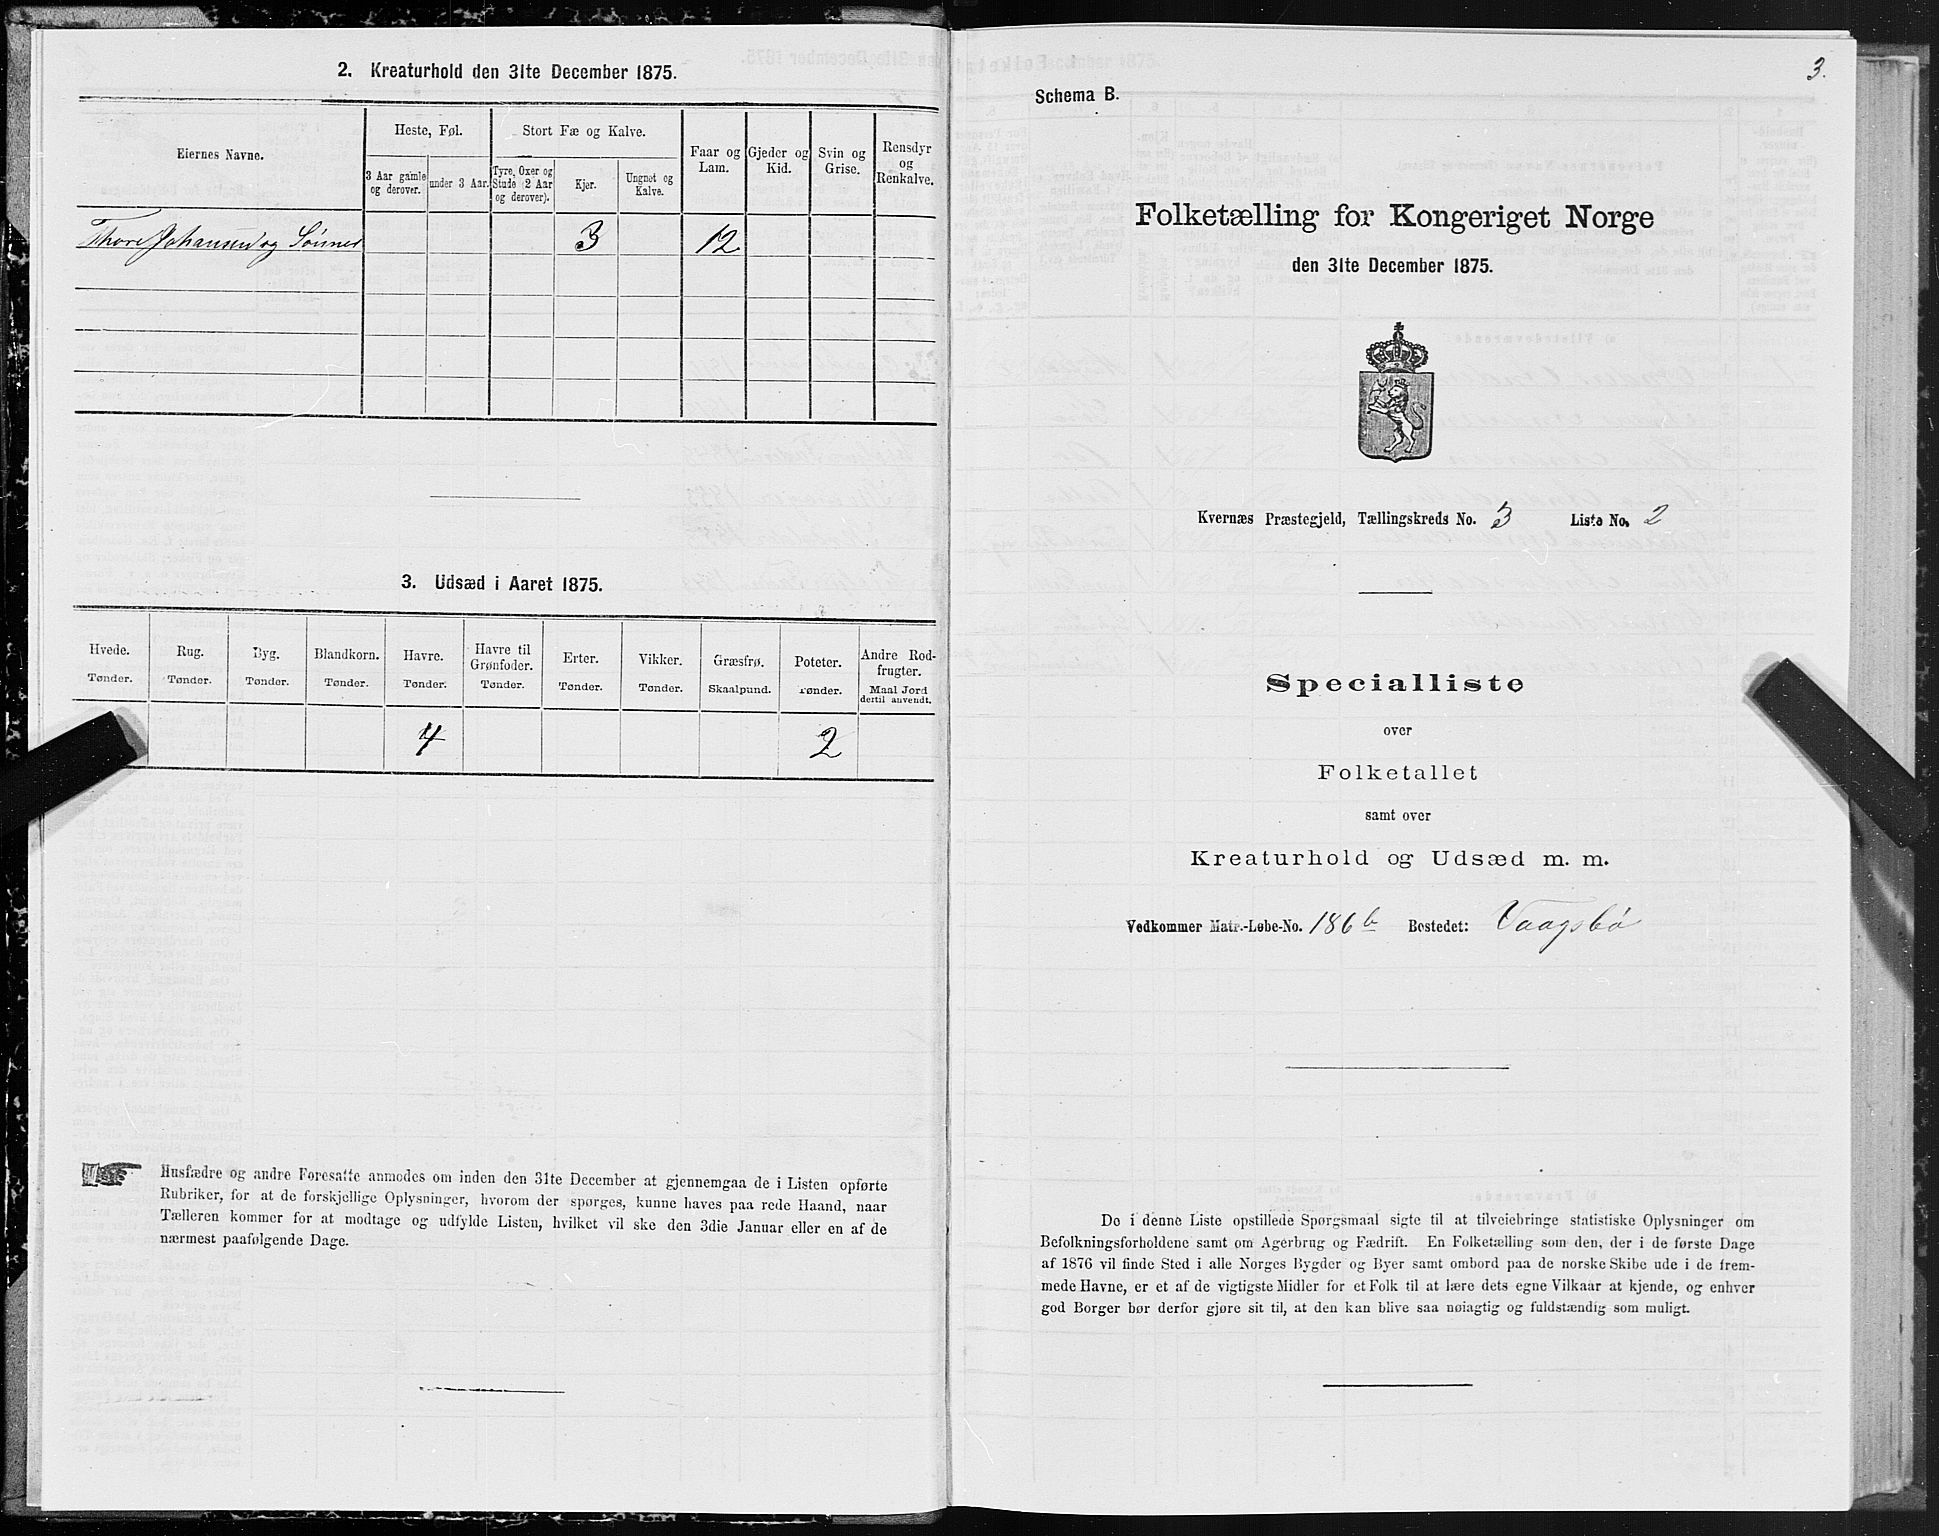 2. Kreaturhold den 31te December 1875.
Eiernes Navne.
Heste, Føl.
Stort Fæ og Kalve.
Faar og Lam.
Gjeder og Kid.
Svin og Grise.
Rensdyr og Renkalve.
3 Aar gamle og derover.
under 3 Aar.
Tyre, Oxer og Stude (2 Aar og derover).
Kjer.
Ungnøt og Kalve.
Thore Johansen og Sønner 3 12
3. Udsæd i Aaret 1875.
Hvede. Rug. Byg. Blandkorn. Havre. Havre til Grønfoder. Erter. Vikker. Græsfrø. Poteter. Andre Rodfrugter.
Tønder. Tønder. Tønder. Tønder. Tønder. Tønder. Tønder. Tønder. Skaalpund. Tønder. Maal Jord dertil anvendt.
4 2
Husfædre og andre Foresatte anmodes om inden den 31te December at gjennemgaa de i Listen opførte
Rubriker, for at de forskjellige Oplysninger, hvorom der spørges, kunne haves paa rede Haand, naar
Tælleren kommer for at modtage og udfylde Listen, hvilket vil ske den 3die Januar eller en af de
nærmest paafølgende Dage.
3.
Schema B.
Folketælling for Kongeriget Norge
den 31te December 1875.
Kvernæs Præstegjeld, Tællingskreds No. 3 Liste No. 2
Specialliste
over
Folketallet
samt over
Kreaturhold og Udsæd m. m.
Vedkommer Matr.-Løbe-No. 186 b Bostedet: Vaagsbø
De i denne Liste opstillede Spørgsmaal sigte til at tilveiebringe statistiske Oplysninger om
Befolkningsforholdene samt om Agerbrug og Fædrift. En Folketælling som den, der i de første Dage
af 1876 vil finde Sted i alle Norges Bygder og Byer samt ombord paa de norske Skibe ude i de frem-
mede Havne, er et af de vigtigste Midler for et Folk til at lære dets egne Vilkaar at kjende, og enhver
god Borger bør derfor gjøre sit til, at den kan blive saa nøiagtig og fuldstændig som muligt.